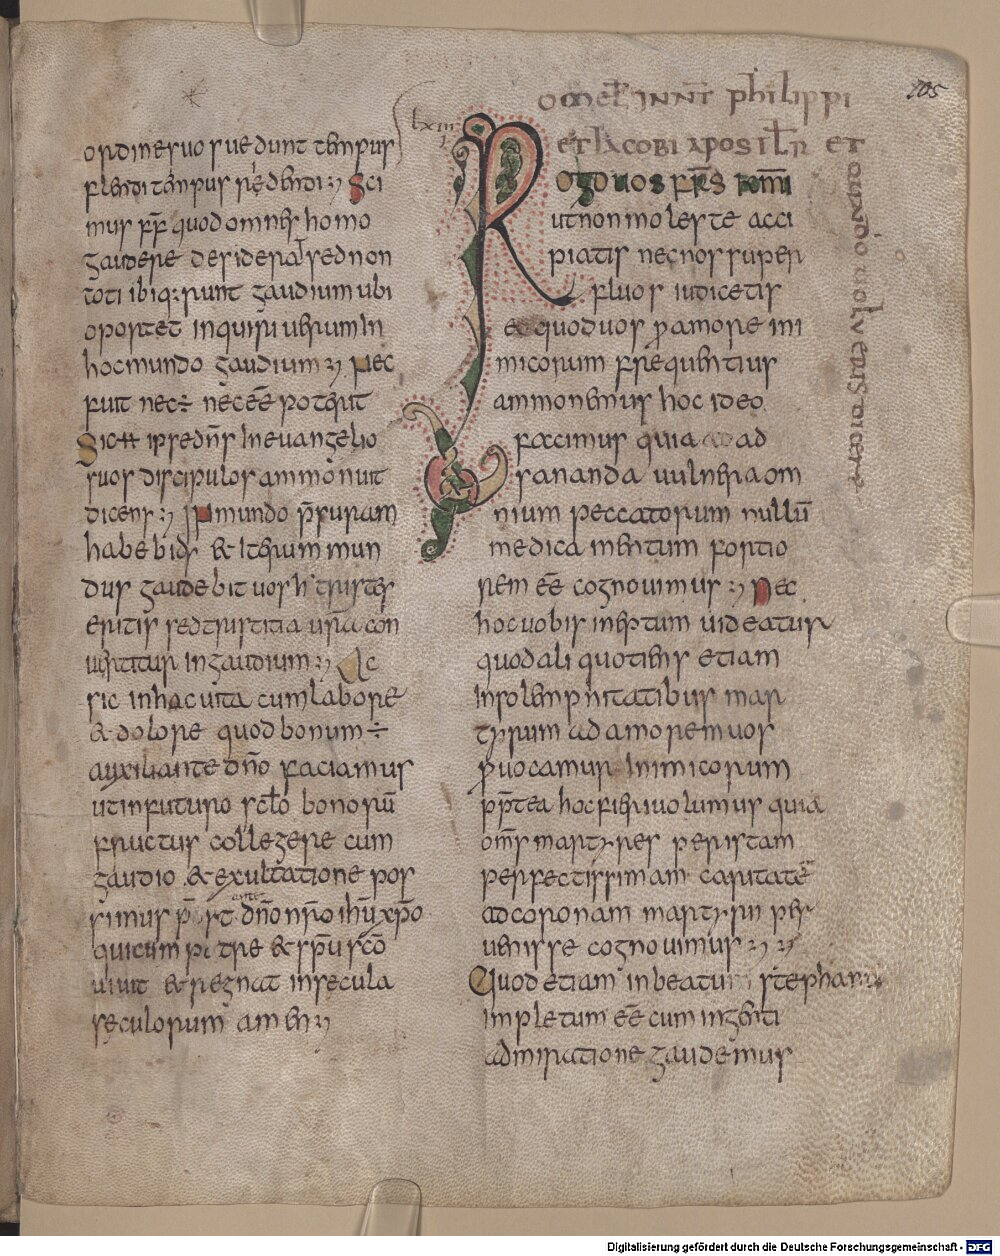 105
ordine suo sue dunt tempus
flendi tempus ridendi Sci
mus fr̄ quod omnes homo
gaudere desiderat sed non
toti ibi q: sunt gaudium ubi
oportet inquisi uerum In
hoc mundo gaudium Nec
fuit nec ÷ nec eē poterit
Sic H ipse dn̄s In euangelio
suos discipulos ammonuit
dicens In mundo p̄suram
habebitis & Iterum mun
dus gaudebit uos h tristes
eritis sed tristitia ur̄a con
uertitur in gaudium Ac
sic in hac uita cum labore
& dolore quod bonum ÷
auxiliante dn̄o faciamus
ut in futuro sc̄lo bonorū
fructus collegere cum
gaudio & exultatione pos
simus dn̄o nr̄o ihū xp̄o
qui cum patre & sp̄u sc̄o
uiuit & regnat in secula
seculorum amen
lxiii
philippi
et Iacobi apostl et
quando uolueris dicere
Rogo uos fr̄s kmī
ut non moleste acci
piatis nec nos super
fluos iudicetis
eo quod uos p amore ini
micorum frequentius
ammonemus hoc ideo
facimus quia ad
sananda uulnera om
nium peccatorum nullū
medicamentum fortio
rem eē cognouimus Nec
hoc uobis ineptum uideatur
quod ali quotiens etiam
In solempnitatibus mar
tyrum ad amorem uos
puocamus Inimicorum
pp̄tea hoc fieri uolumus quia
omn̄s martyres per istam
perfectissimam caritatē
ad coronam martyrii per
uenisse cognouimus
Quod etiam in beatum stephanum
Impletum eē cum ingenti
admiratione gaudemus
Digitalisierung gefördert durch die Deutsche Forschungsgemeinschaft - DFG